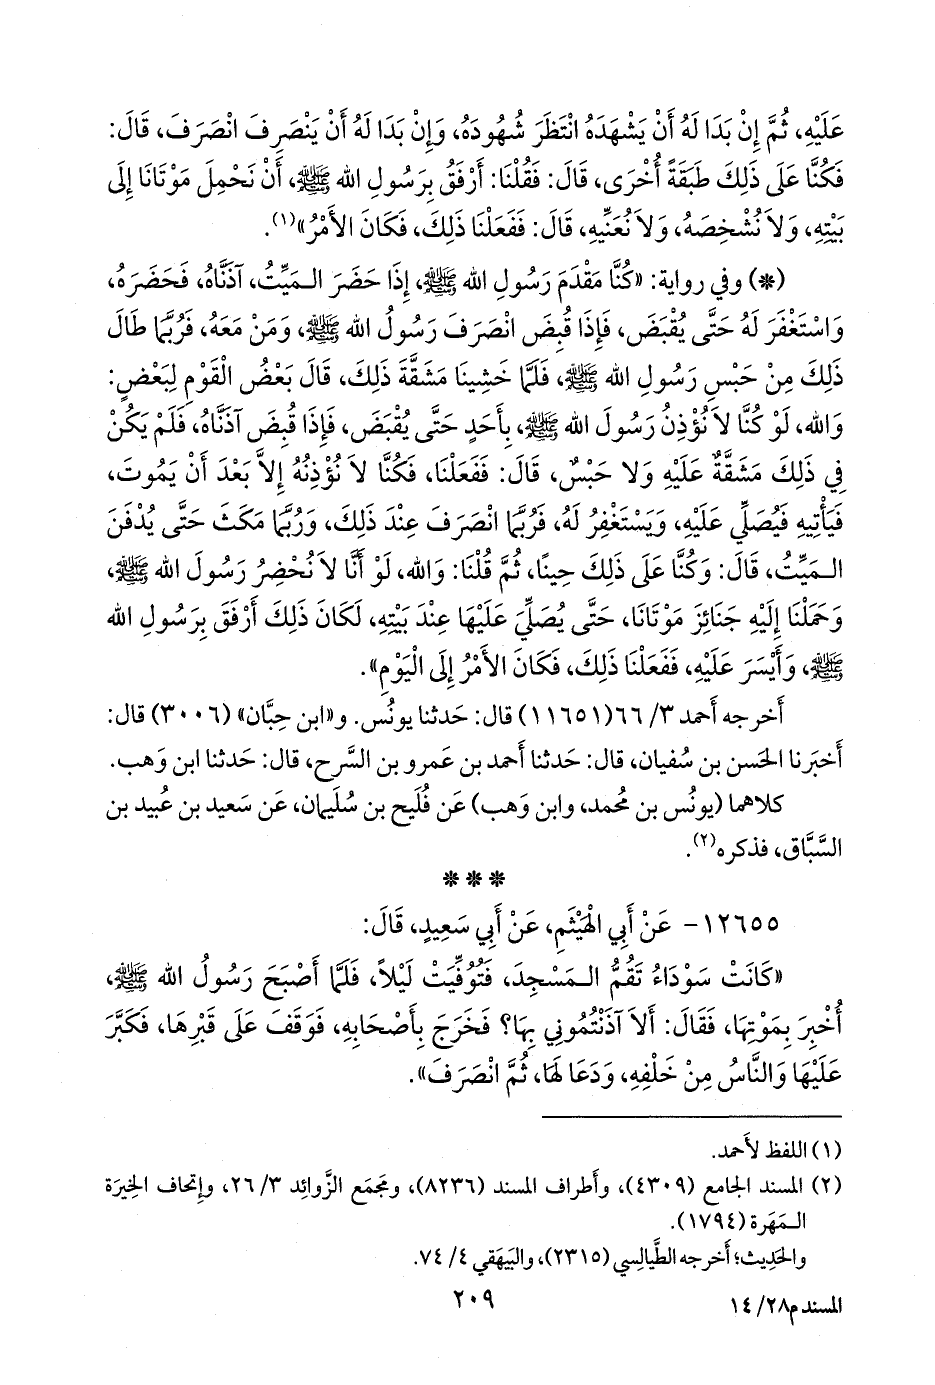 عَلَيْهِ، ثُمَّ إِنْ بَدَا لَهُ أَنْ يَشْهَدَهُ انْتَظَرَ شُهُودَهُ، وَإِنْ بَدَا لَهُ أَنْ يَنْصَرِفَ انْصَرَفَ، قَالَ:
فَكُنَّا عَلَى ذَلِكَ طَبَقَةً أُخْرَى، قَالَ: فَقُلْنَا: أَرْفَقُ بِرَسُولِ الله ﷺ، أَنْ نَحْمِلَ مَوْتَانَا إِلَى
بَيْتِهِ، وَلاَ نُشْخِصَهُ، وَلاَ نُعَنِّيهِ، قَالَ: فَفَعَلْنَا ذَلِكَ، فَكَانَ الأَمْرُ»(١).
(*) وفي رواية: «كُنَّا مَقْدَمَ رَسُولِ الله ﷺ، إِذَا حَضَرَ الـمَيِّتُ، آذَنَّاهُ، فَحَضَرَهُ،
وَاسْتَغْفَرَ لَهُ حَتَّى يُقْبَضَ، فَإِذَا قُبِضَ انْصَرَفَ رَسُولُ الله ﷺ، وَمَنْ مَعَهُ، فَرُبَّمَا طَالَ
ذَلِكَ مِنْ حَبْسِ رَسُولِ الله ﷺ، فَلَمَّا خَشِينَا مَشَقَّةَ ذَلِكَ، قَالَ بَعْضُ الْقَوْمِ لِبَعْضٍ:
وَالله، لَوْ كُنَّا لاَ نُؤْذِنُ رَسُولَ الله ﷺ، بِأَحَدٍ حَتَّى يُقْبَضَ، فَإِذَا قُبِضَ آذَنَّاهُ، فَلَمْ يَكُنْ
فِي ذَلِكَ مَشَقَّةٌ عَلَيْهِ وَلا حَبْسٌ، قَالَ: فَفَعَلْنَا، فَكُنَّا لاَ نُؤْذِنُهُ إِلاَّ بَعْدَ أَنْ يَمُوتَ،
فَيَأْتِيهِ فَيُصَلِّي عَلَيْهِ، وَيَسْتَغْفِرُ لَهُ، فَرُبَّمَا انْصَرَفَ عِنْدَ ذَلِكَ، وَرُبَّمَا مَكَثَ حَتَّى يُدْفَنَ
الـمَيِّتُ، قَالَ: وَكُنَّا عَلَى ذَلِكَ حِينًا، ثُمَّ قُلْنَا: وَالله، لَوْ أَنَّا لاَ نُحْضِرُ رَسُولَ الله ﷺ،
وَحَمَلْنَا إِلَيْهِ جَنَائِزَ مَوْتَانَا، حَتَّى يُصَلِّيَ عَلَيْهَا عِنْدَ بَيْتِهِ، لَكَانَ ذَلِكَ أَرْفَقَ بِرَسُولِ الله
ﷺ، وَأَيْسَرَ عَلَيْهِ، فَفَعَلْنَا ذَلِكَ، فَكَانَ الأَمْرُ إِلَى الْيَوْمِ».
أخرجه أحمد ٣/ ٦٦ (١١٦٥١) قال: حَدثنا يونُس. و«ابن حِبَّان» (٣٠٠٦) قال:
أَخبَرنا الحَسن بن سُفيان، قال: حَدثنا أحمد بن عَمرو بن السَّرح، قال: حَدثنا ابن وَهب.
كلاهما (يونُس بن مُحمد، وابن وَهب) عَن فُلَيح بن سُليمان، عَن سَعيد بن عُبيد بن
السَّبَّاق، فذكره(٢).
* * *
١٢٦٥٥- عَنْ أَبِي الْهَيْثَمِ، عَنْ أَبِي سَعِيدٍ، قَالَ:
«كَانَتْ سَوْدَاءُ تَقُمُّ الـمَسْجِدَ، فَتُوُفِّيَتْ لَيْلاً، فَلَمَّا أَصْبَحَ رَسُولُ الله ﷺ،
أُخْبِرَ بِمَوْتِهَا، فَقَالَ: أَلاَ آذَنْتُمُونِي بِهَا؟ فَخَرَجَ بِأَصْحَابِهِ، فَوَقَفَ عَلَى قَبْرِهَا، فَكَبَّرَ
عَلَيْهَا وَالنَّاسُ مِنْ خَلْفِهِ، وَدَعَا لَهَا، ثُمَّ انْصَرَفَ».
(١) اللفظ لأَحمد.
(٢) المسند الجامع (٤٣٠٩)، وأَطراف المسند (٨٢٣٦)، ومَجمَع الزَّوائِد ٣/ ٢٦، وإِتحاف الخِيرَة
الـمَهَرة (١٧٩٤).
والحَدِيث؛ أَخرجه الطَّيالِسي (٢٣١٥)، والبَيهَقي ٤/ ٧٤.
المسند م٢٨/ ١٤
٢٠٩